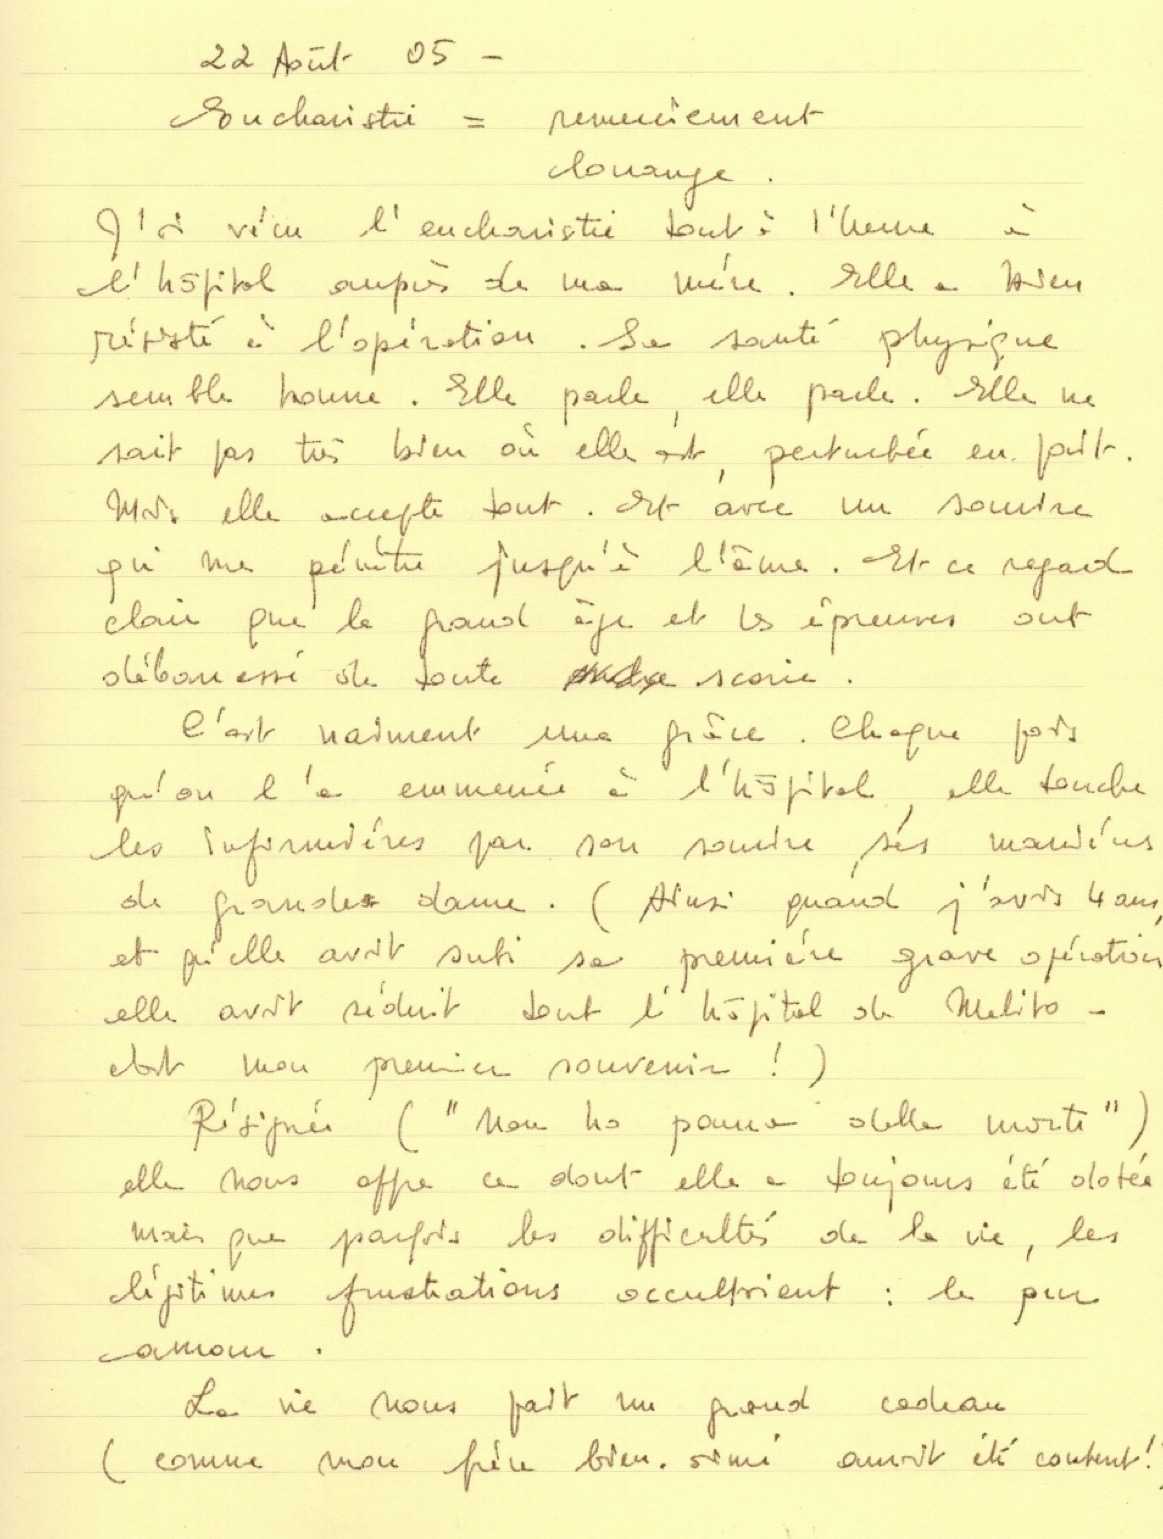 22 Août 05 -
Eucharistie = remerciement
louange.
J'ai vécu l'eucharistie tout à l'heure à
l'hôpital auprès de ma mère. Elle a bien
résisté à l'opération. Sa santé physique
semble bonne. Elle parle, elle parle. Elle ne
sait pas très bien où elle est, perturbée en fait.
Mais elle accepte tout. Et avec un sourire
qui me pénètre jusqu'à l'âme. Et ce regard
clair que le grand âge et les épreuves ont
débarrassé de toute scorie.
C'est vraiment une grâce. Chaque fois
qu'on l'a emmenée à l'hôpital, elle touche
les infirmières par son sourire, ses manières
de grande dame. (Ainsi quand j'avais 4 ans,
et qu'elle avait subi sa première grave opération
elle avait séduit tout l'hôpital de Melito -
c'est mon premier souvenir !)
Résignée ("Non ho paura della morte")
elle nous offre ce dont elle a toujours été dotée
mais que parfois les difficultés de la vie, les
légitimes frustrations occultaient : le pur
amour.
La vie nous fait un grand cadeau
(comme mon frère bien-aimé aurait été content !)